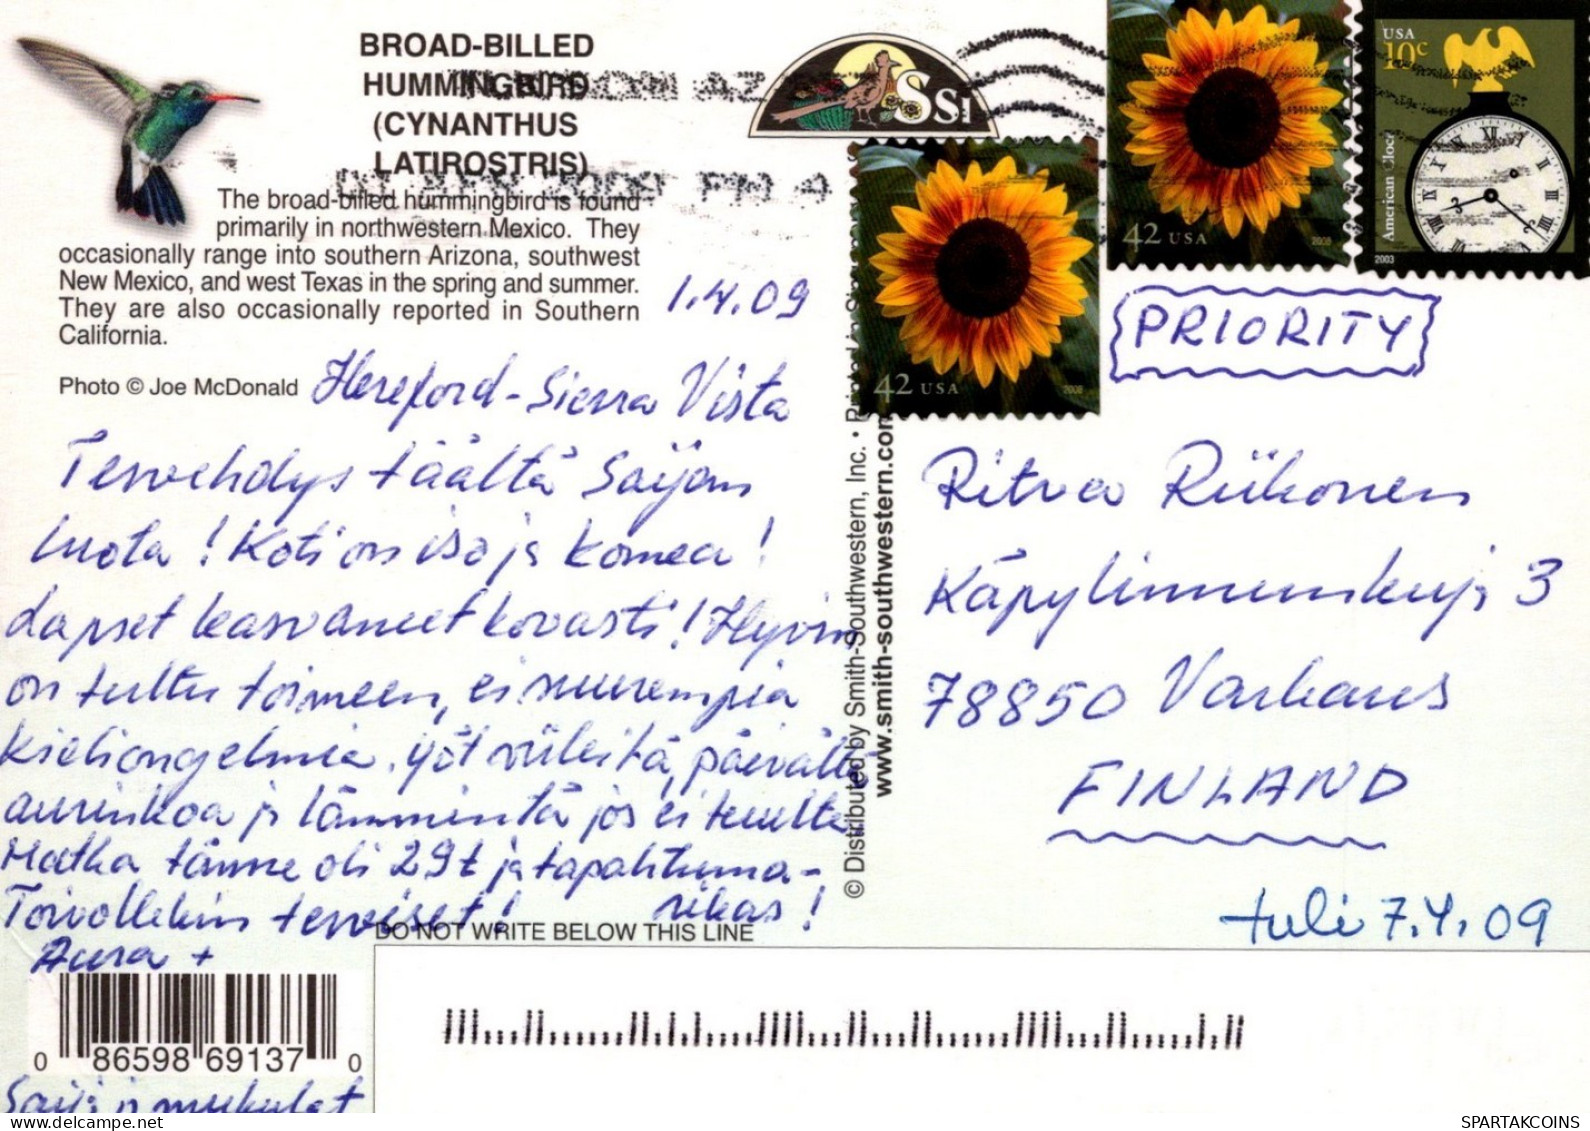 BROAD-BILLED
HUMMINGBIRD
(CYNANTHUS
LATIROSTRIS)
The broad-billed hummingbird is found
primarily in northwestern Mexico. They
occasionally range into southern Arizona, southwest
New Mexico, and west Texas in the spring and summer.
They are also occasionally reported in Southern
California.
Photo © Joe McDonald
AZ
2009 PM 4
SSI
42 USA
2008
42 USA
2008
USA
10c
American Clock
2003
1.4.09
Hereford-Sierra Vista
Tervehdys täältä Saijan
luota! Koti on iso ja komea!
Lapset kasvaneet kovasti! Hyvin
on tultu toimeen, ei suurempia
kieliongelmia. Yöt viileitä, päivällä
aurinkoa ja lämmintä jos ei tuulta
Matka tänne oli 29t ja tapahtuma-
rikas!
Toivollekin terveiset!
Aura +
Saija ja mukulat
DO NOT WRITE BELOW THIS LINE
0 86598 69137 0
© Distributed by Smith-Southwestern, Inc. • Printed in
www.smith-southwestern.com
PRIORITY
Ritva Riikonen
Käpylinnunkuja 3
78850 Varkaus
FINLAND
tuli 7.4.09
SPARTAKCOINS